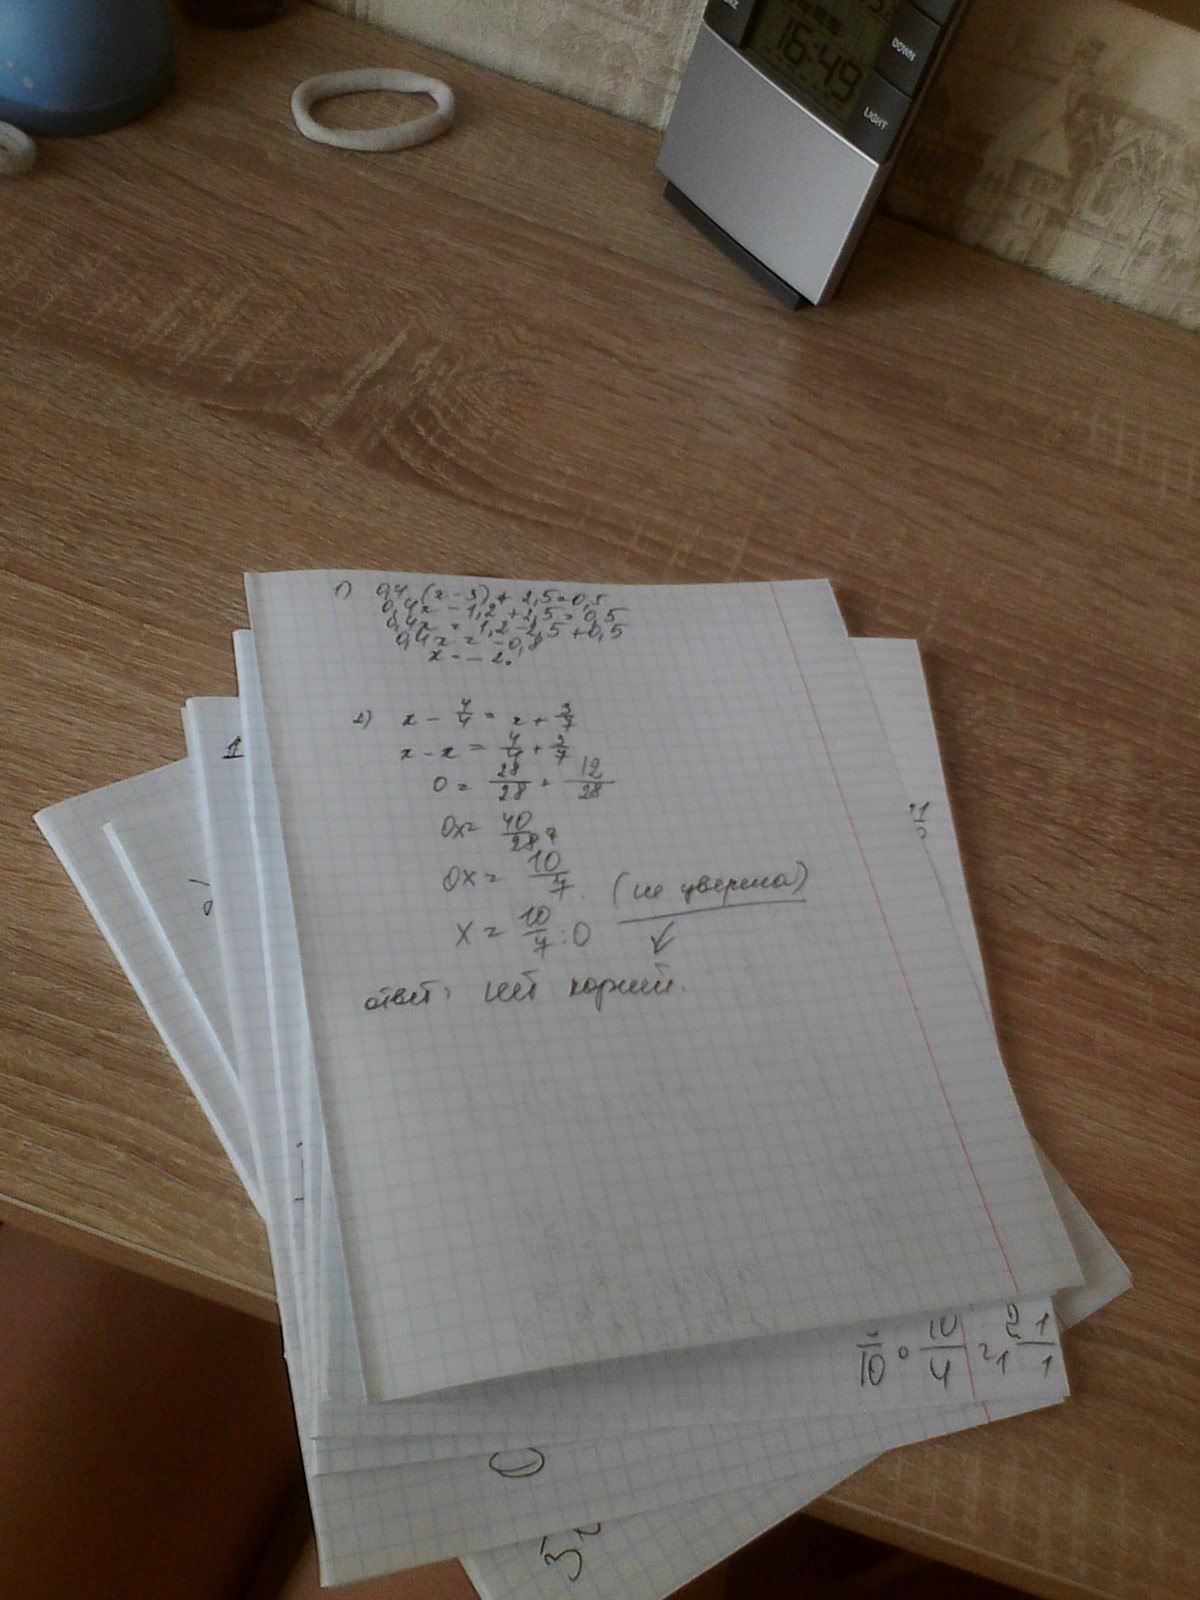 16:49
DOWN
LIGHT
1) 0,4 (x - 3) + 2,5 = 0,5
0,4x - 1,2 + 2,5 = 0,5
0,4x = 1,2 - 2,5 + 0,5
0,4x = - 0,8
x = - 2.
2) x - 4/4 = x + 3/7
x - x = 4/4 + 3/7
0 = 28/28 + 12/28
0x = 40/28
0x = 10/7. (не уверена)
x = 10/7 : 0
ответ: нет корней.
10/4